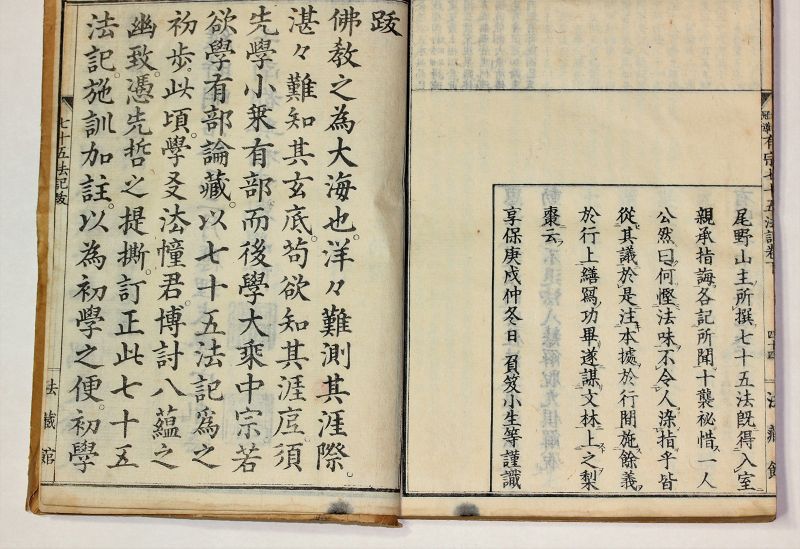 有宗七十五法記卷下 四十四 法藏館
尾野山主所撰七十五法旣得入室
親承指誨各記所聞十襲祕惜一人
公然曰何慳法味不令人染指乎皆
從其議於是注本據於行間施餘義
於行上繕寫功畢遂謀文林上之梨
棗云
享保庚戌仲冬日 負笈小生等謹識
跋
佛敎之為大海也。洋々難測其涯際。
湛々難知其玄底。苟欲知其涯底須
先學小乗有部而後學大乗中宗若
欲學有部論藏。以七十五法記爲之
初步。此頃學友法幢君。博討八蘊之
幽致。憑先哲之提撕。訂正此七十五
法記。施訓加註。以為初學之便。初學
七十五法記跋
法藏館